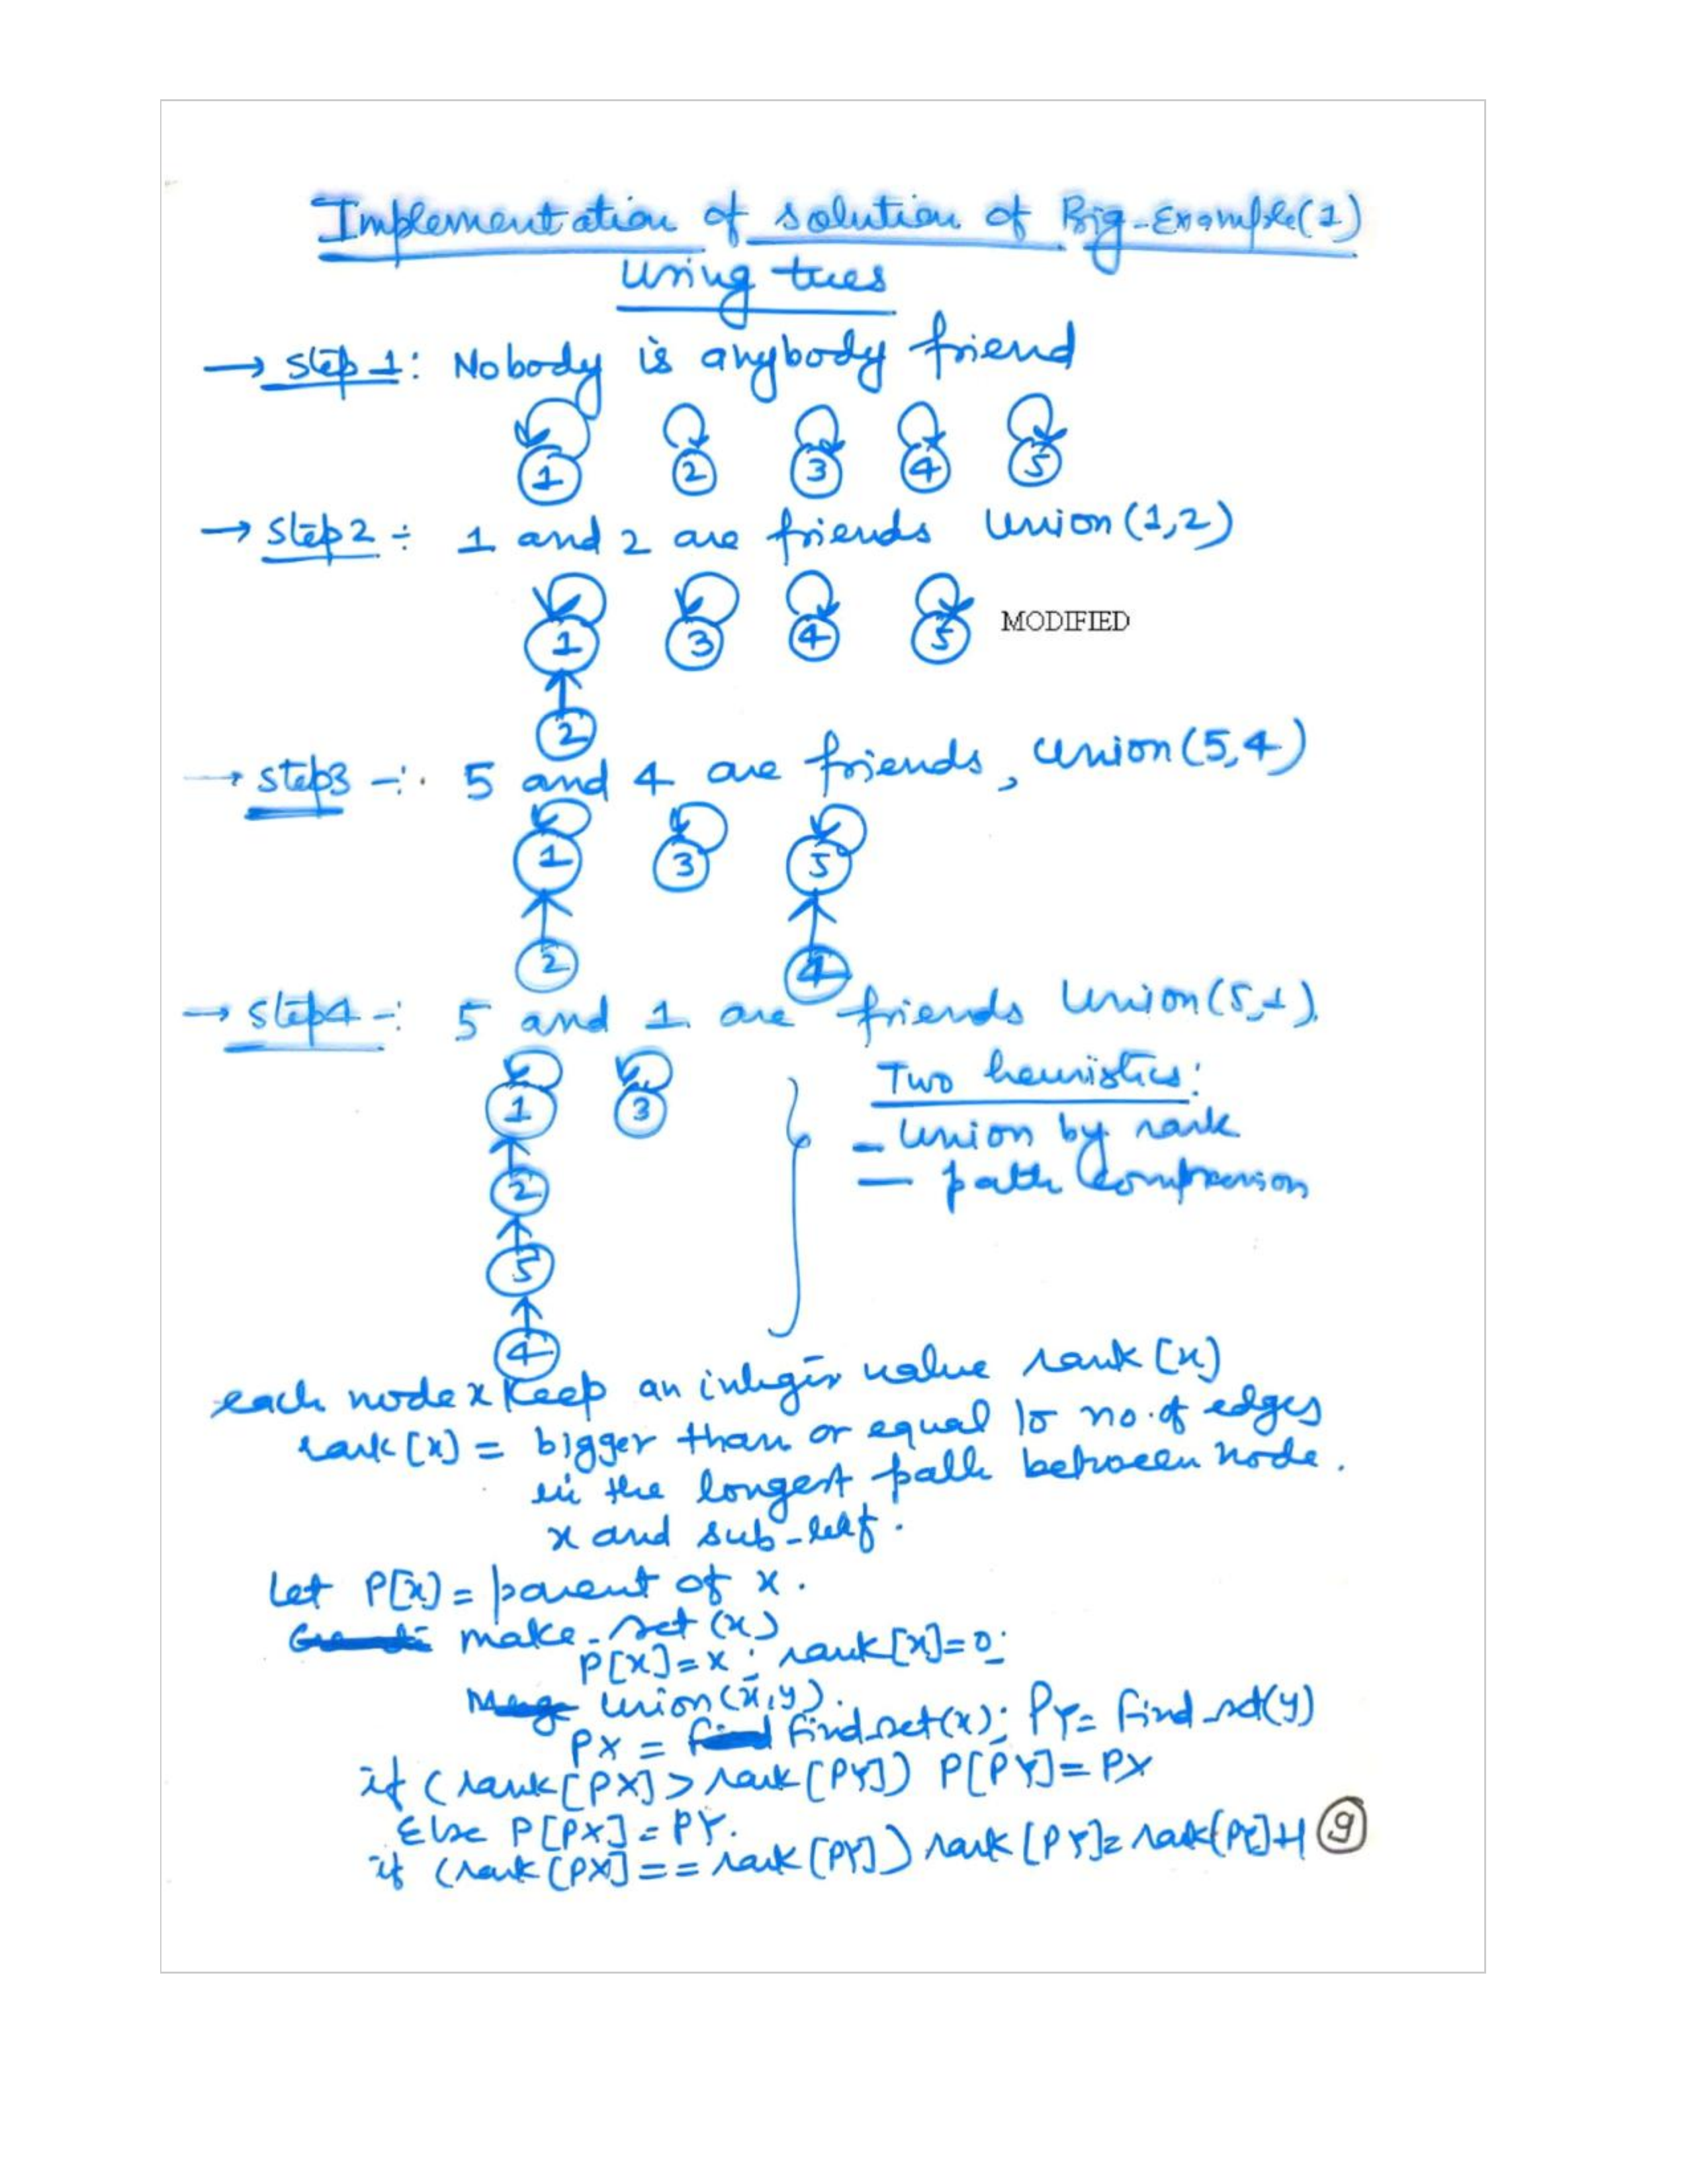 Implementation of solution of Big-Example(1)
Using trees
→ Step 1: Nobody is anybody friend
1 2 3 4 5
→ Step2 ÷ 1 and 2 are friends Union(1,2)
1 3 4 5 MODIFIED
2
→ Step3 -: 5 and 4 are friends, Union(5,4)
1 3 5
2 4
→ Step4 -: 5 and 1 are friends Union(5,1).
1 3
2
5
4
Two heuristics:
- Union by rank
- path compression
each node x keep an integer value rank[x]
rank[x] = bigger than or equal to no. of edges
in the longest path between node.
x and sub-leaf.
Let P[x] = parent of x.
make-set(x)
P[x]=x; rank[x]=0;
Union(x,y).
PX = find-set(x); PY= find-set(y)
if (rank[PX] > rank[PY]) P[PY]=PX
Else P[PX]=PY.
if (rank[PX]==rank[PY]) rank[PY]=rank[PY]+1
9